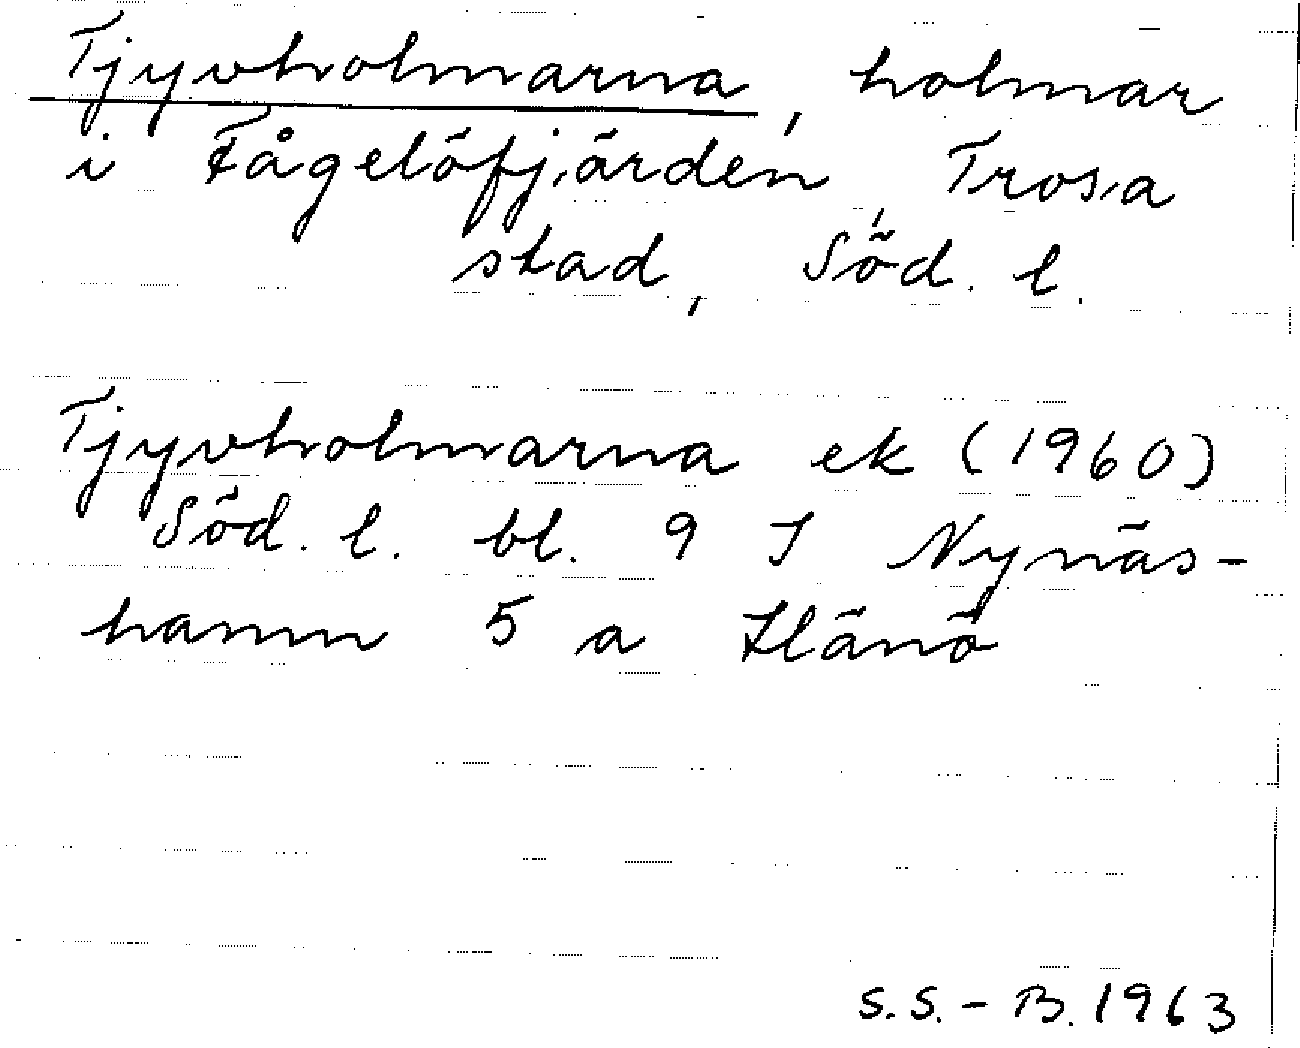 Tjyvholmarna, holmar
i Fågelöfjärden, Trosa
stad, Söd. l.
Tjyvholmarna ek (1960)
Söd. l. bl. 9 I Nynäs-
hamn 5 a Hånö
S.S.-B. 1963